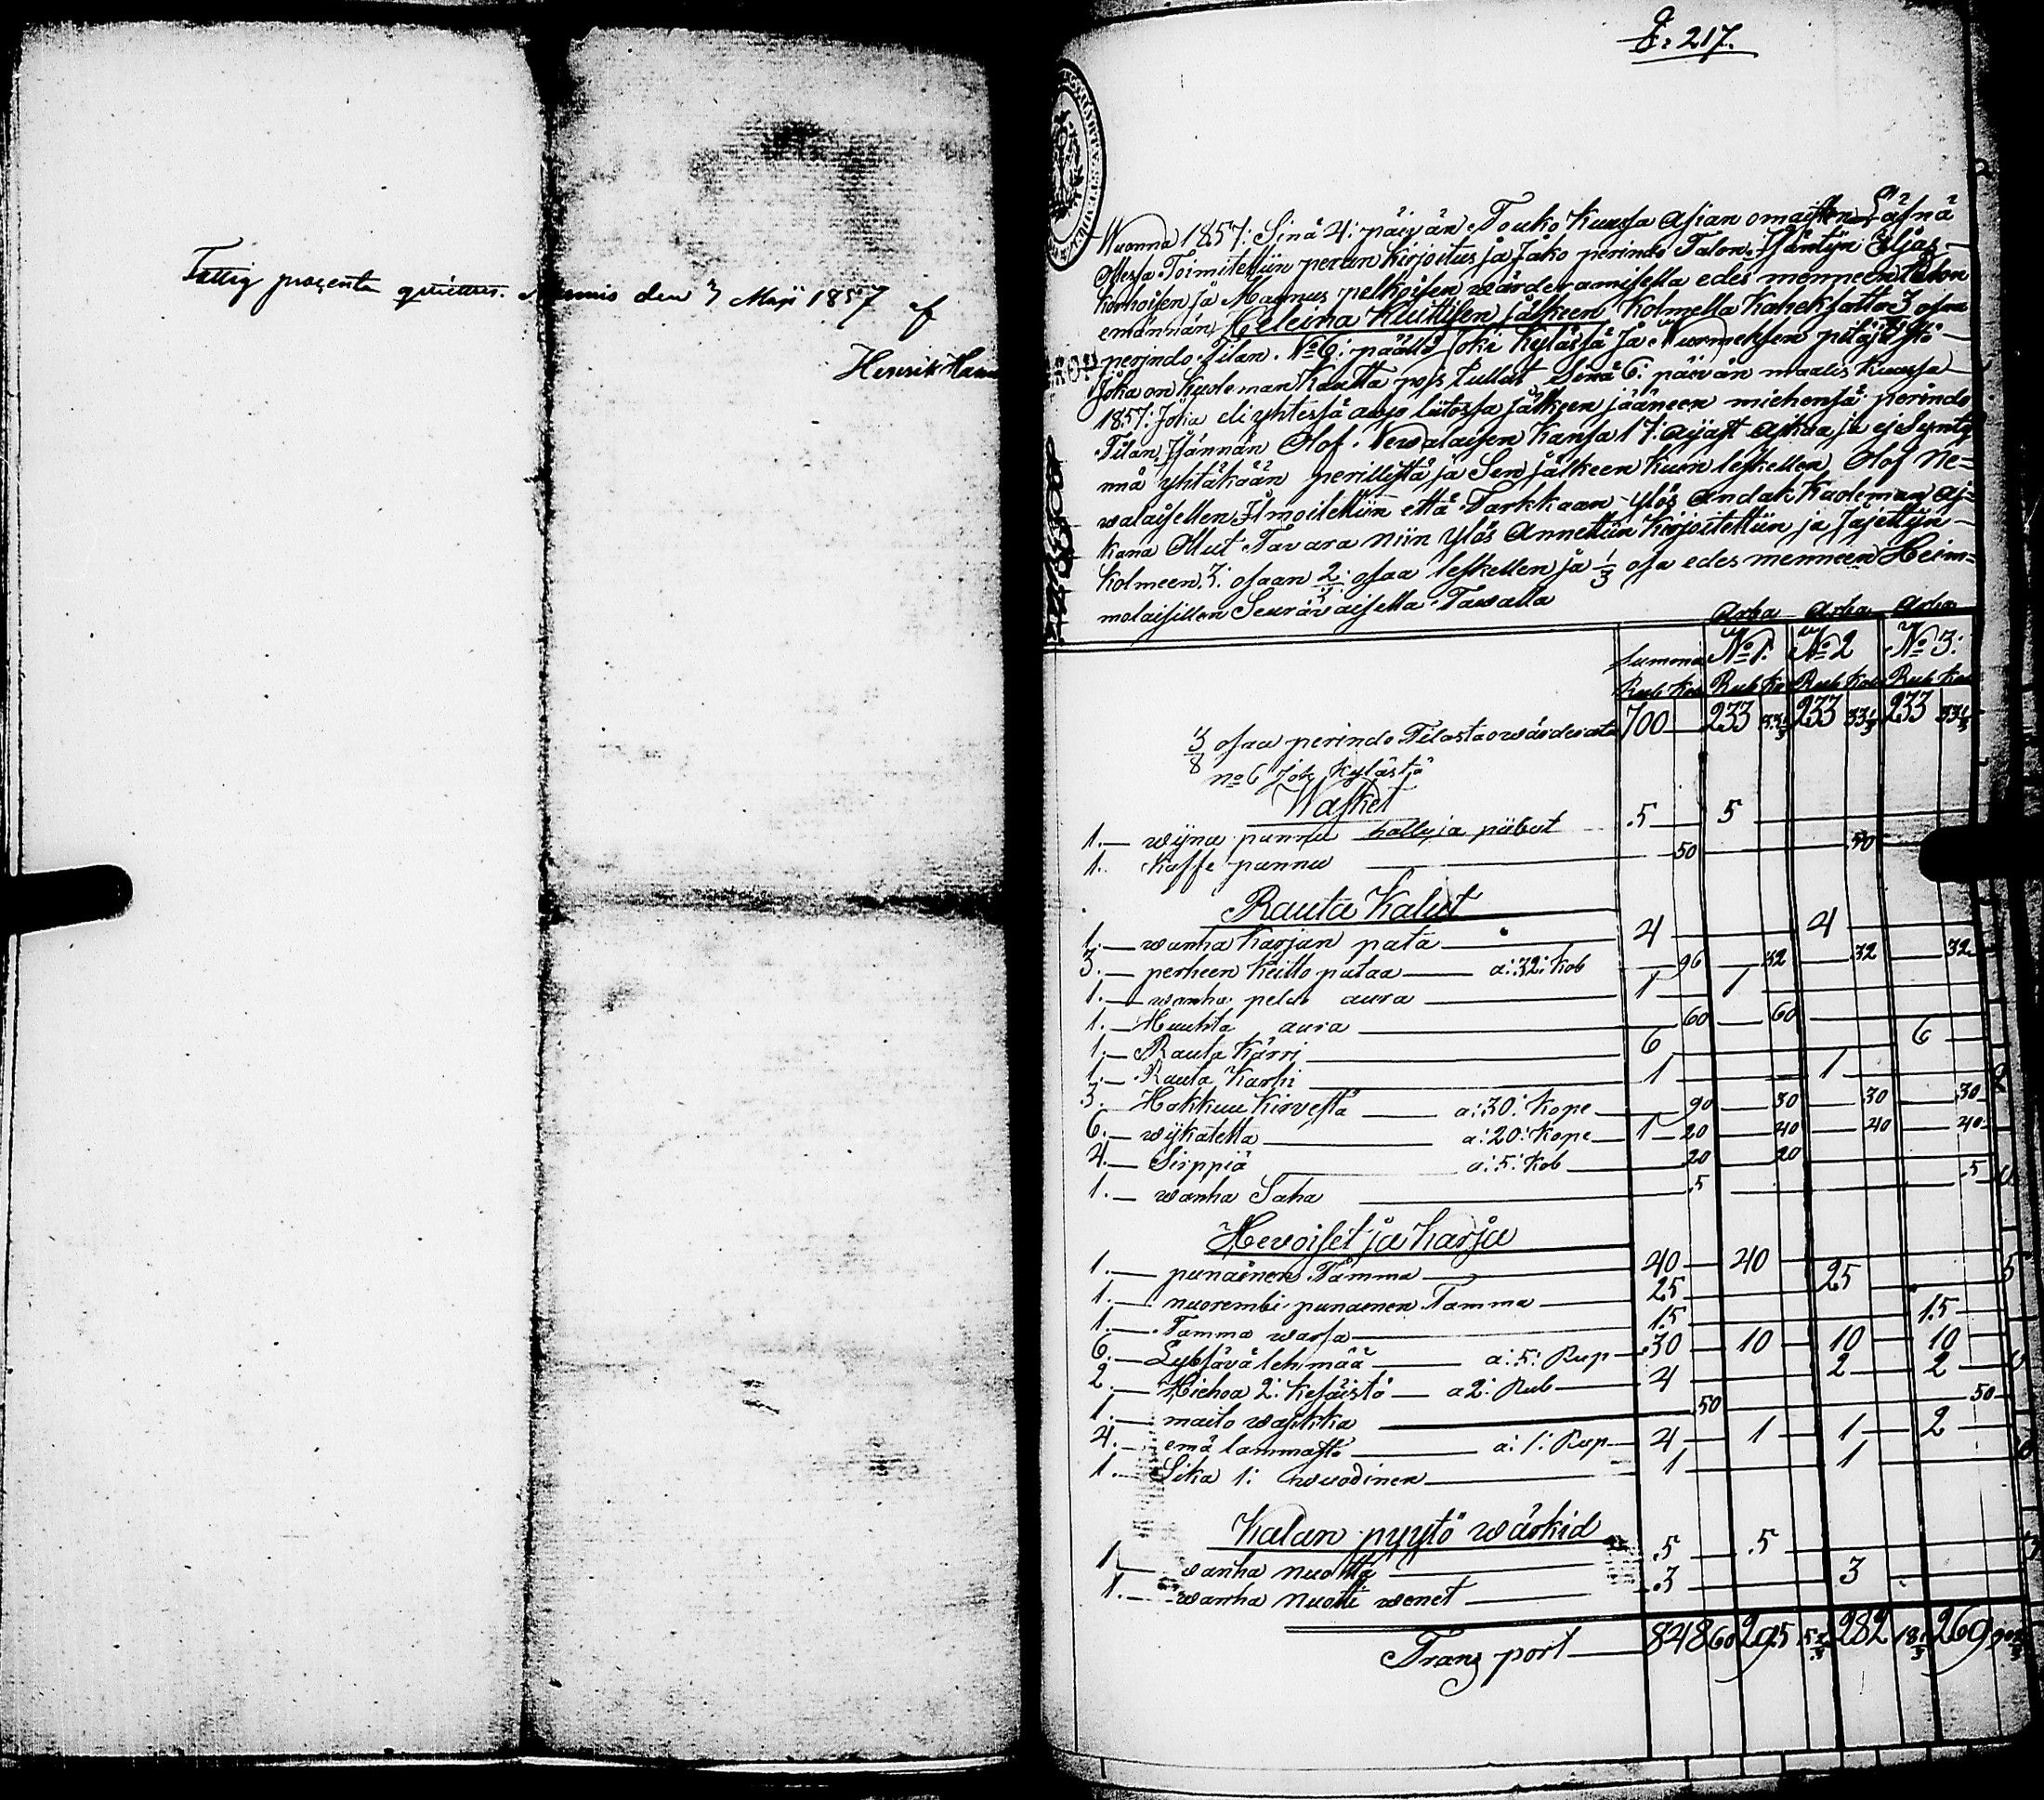 Fattig procenten quitteras. Nurmis den 3 Maji 1857 af
Henrik
E: 217.
Wuonna 1857: Sinä 4: päivän Touko Kuussa Asian omaisten Läsnä
Ollessa Toimitettiin perun Kirjoitus ja Jako perindo Talon Isäntijn Eljas
Korhoisen ja Magnus pelkoisen wärderamisella edes menneen talon
emännän Heleina Kuittisen jälkeen Kolmella Kaheksatta 3 osaa
perindo Tilan No 6: päältä Joki Kylässä ja Nurmeksen pitäjästä
Joka on Kuoleman Kautta pois tullut Sinä 6: päivän maalis Kuussa
1857: Joka eli yhtessä avjo liitossa jälkeen jääneen miehensä perindo
Tilan Isännän Olof Newalaisen Kansa 17: aijast ajkaa ja ej Syndy
nnä yhtäkään perillistä ja Sen jälkeen Kuin leskellen Olof Ne=
walaisellen Ilmoitettiin että Tarkkaan Ylös Andak Kuoleman aj=
kana Ollut Tavara niin Ylös Annettiin Kirjoitettiin ja Jajettijn
Kolmeen 3: osaan 2/3: osaa leskellen ja 1/3 osa edes menneen Heim=
molaisillen Seuravaisella Tawalla
Arba Arba Arba
Summa No 1: No 2 No 3:
Rub Kop Rub Kop Rub Kop Rub Kop
3/8 osaa perindo Tilasta wärderattu 700 233 33 1/3 233 33 1/3 233 33 1/3
no 6 Joki Kylästä
Wasket
1. wijna pannu hattu ja piibut 5 5
1. Kaffe pannu 50 50
Rauta Kalut
1. wanha Karjan pata 4 4
3. perheen Keitto pataa a: 32: Kob 96 32 32 32
1. wanha peldo aura 1 1
1. Huuhta aura 60 60
1. Rauta Kärri 6 6
1. Rauta Karhi 1 1
3. Hakkuu Kirvestä a: 30: Kope 90 30 30 30
6. wijkatetta a: 20: Kope 1 20 40 40 40
4. Sirppiä a: 5: Kob 20 20
1. wanha Saha 5 5
Hevoiset ja Karja
1. punainen Tamma 40 40
1. nuorembi punainen Tamma 25 25
1. Tamma warsa 15 15
6. Lybsävä lehmää a: 5: Rup 30 10 10 10
2. Hiehoa 2: Kesäistä a 2: Rub 4 2 2
1. maito wasikka 50 50
4. emä lammasta a: 1: Rup 4 1 1 2
1. Sika 1: wuodinen 1 1
Kalan pyytö wärkid
1. wanha nuotta 5 5
1. wanha nuotti wenet 3 3
Transport 848 60 295 5 1/3 282 18 1/3 269